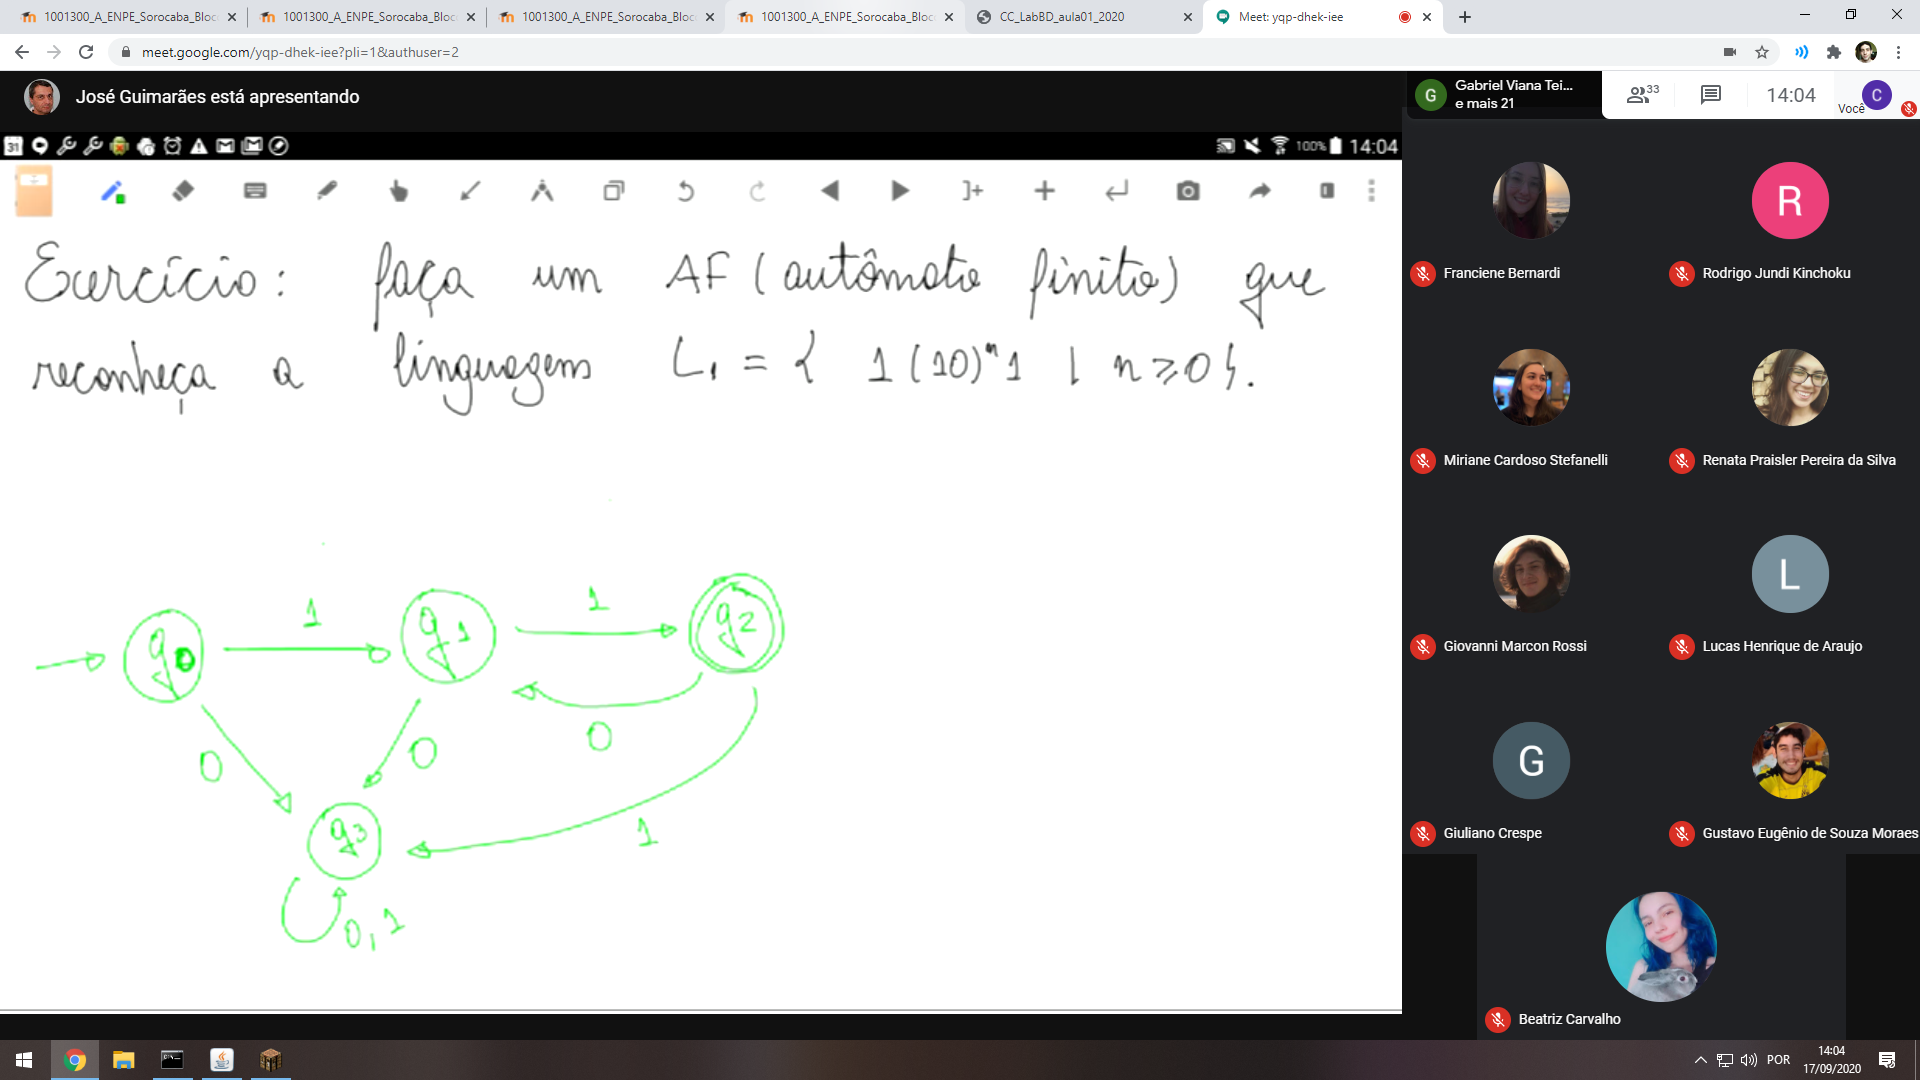 1001300_A_ENPE_Sorocaba_Bloc
1001300_A_ENPE_Sorocaba_Bloc
1001300_A_ENPE_Sorocaba_Bloc
1001300_A_ENPE_Sorocaba_Bloc
CC_LabBD_aula01_2020
Meet: yqp-dhek-iee
meet.google.com/yqp-dhek-iee?pli=1&authuser=2
José Guimarães está apresentando
G
Gabriel Viana Tei...
e mais 21
33
14:04
Você
C
31
100%
14:04
Exercício: faça um AF (autômato finito) que
reconheça a linguagem L₁ = { 1(10)ⁿ1 | n ≥ 0 }.
1
1
q0
q1
q2
0
0
0
q3
1
0,1
R
Franciene Bernardi
Rodrigo Jundi Kinchoku
Miriane Cardoso Stefanelli
Renata Praisler Pereira da Silva
L
Giovanni Marcon Rossi
Lucas Henrique de Araujo
G
Giuliano Crespe
Gustavo Eugênio de Souza Moraes
Beatriz Carvalho
POR
14:04
17/09/2020